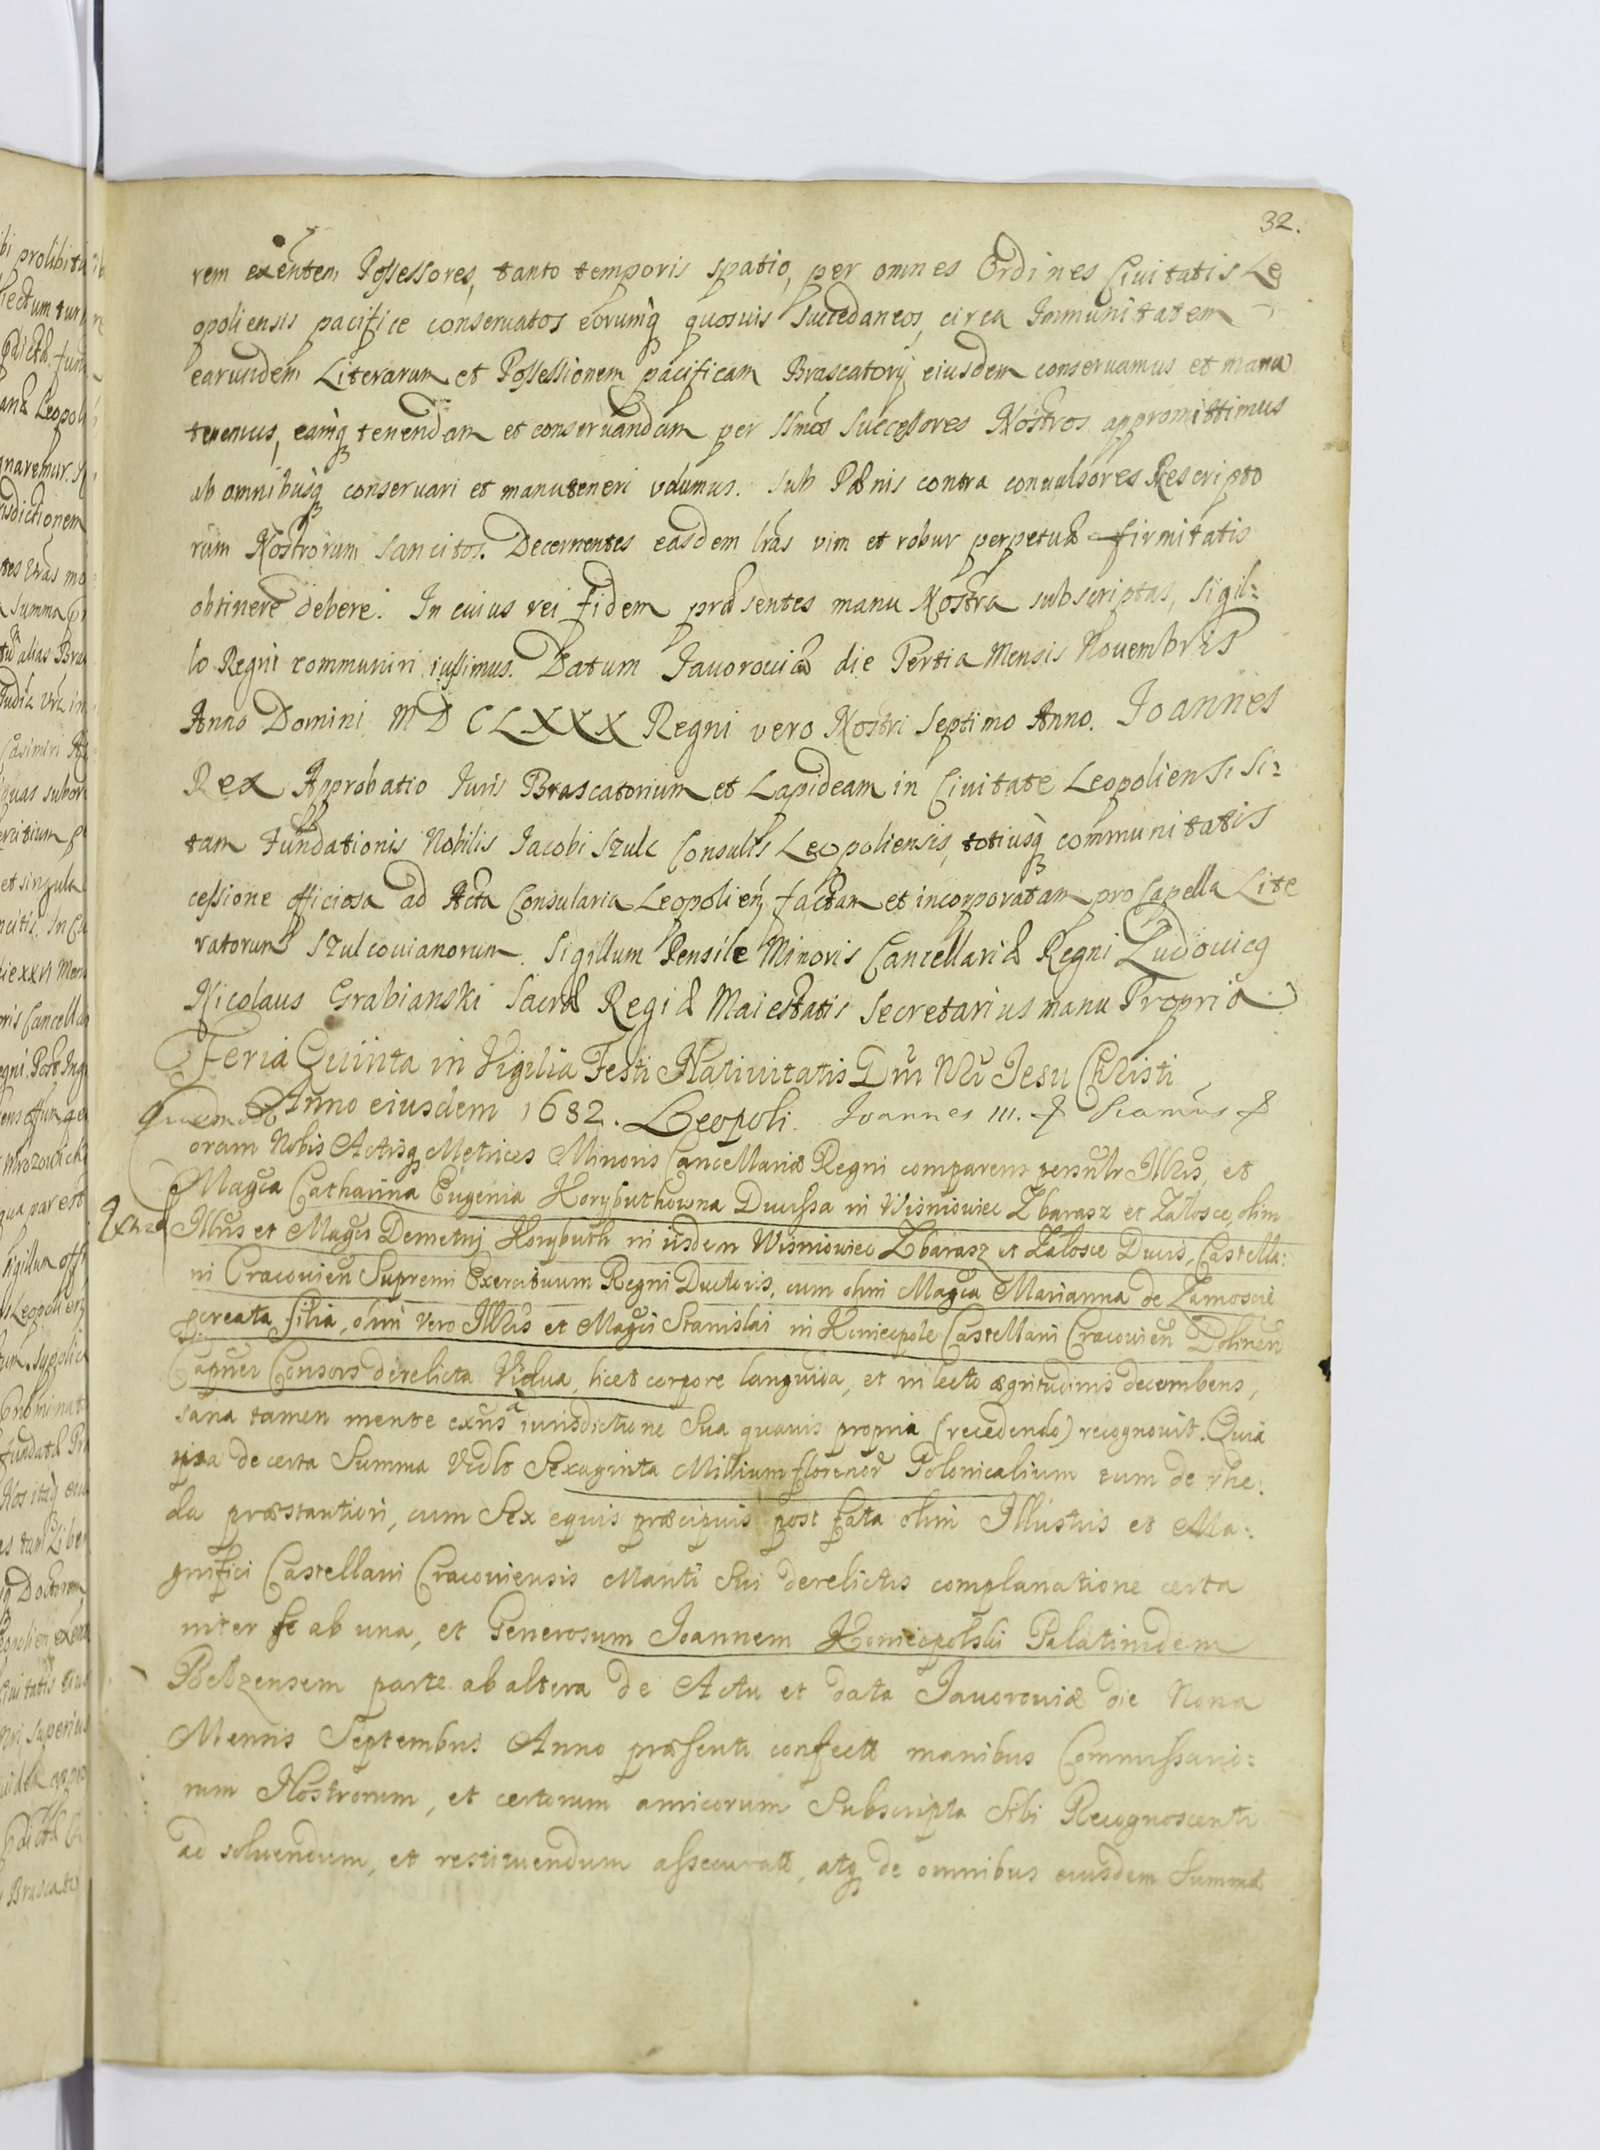 32.
rem exentem Possessores, tanto temporis spatio, per omnes Ordines Civitatis Le
opoliensis pacifice conservatos eorumq quosvis succedaneos, circa Immunitatem
earundem Literarum et Possessionem pacificam Brascatorij eiusdem conservamus et manu
tenemus, eamq tenendam et conservandam per ssmos Successores Nostros appromittimus
ab omnibusq conservari et manuteneri volumus. sub Pænis contra convulsores Rescripto
rum Nostrorum sancitos. Decernentes easdem lras vim et robur perpetuæ firmitatis
obtinere debere. In cuius rei fidem præsentes manu Nostra subscriptas, Sigil=
lo Regni communiri iussimus. Datum Iavoroviæ die Tertia Mensis Novembris
Anno Domini MDCLXXX Regni vero Nostri Septimo Anno. Ioannes
Rex Approbatio Iuris Brascatorium et Lapideam in Civitate Leopoliensi si=
tam Fundationis Nobilis Iacobi Szulc Consulis Leopoliensis, totiusq communitatis
cessione officiosa ad Acta Consularia Leopolien factam et incorporatam pro Capella Lite
ratorum Szulcovianorum. Sigillum Pensile Minoris Cancellariæ Regni Ludovicg
Nicolaus Grabianski Sacræ Regiæ Maiestatis Secretarius manu Propria
Feria Quinta in Vigilia Festi Nativitatis Dni Nri Jesu Christi
Anno eiusdem 1682. Leopoli. Joannes III.
oram Nobis Actisq Metrices Minoris Cancellariæ Regni comparens persnlr Illris, et
Magca Catharina Eugenia Korybuthowna Ducissa in Wisniowiec Zbarasz et Zalosce, olim
Illris et Magci Demetrij Korybuth in iisdem Wisniowiec Zbarasz et Zalosce Ducis, Castella=
ni Cracovien Supremi Exercituum Regni Ductoris, cum olim Magca Marianna de Zamoscie
pcreata filia, olim vero Illris et Magci Stanislai in Koniecpole Castellani Cracovien Dolinen
Capnei Consors derelicta Vidua, licet corpore languida, et in lecto ægritudinis decumbens,
sana tamen mente exns a iurisdictione Sua quavis propria (recedendo) recognovit. Quia
ipsa de certa Summa Vidlt Sexaginta Millium florenor Polonicalium tum de rhe=
da præstantiori, cum Sex equis præcipuis post fata olim Illustris et Ma=
gnifici Castellani Cracoviensis Mariti Sui derelictis complanatione certa
inter se ab una, et Generosum Joannem Koniecpolski Palatinidem
Belzensem parte ab altera de Actu et data Javoroviæ die Nona
Mensis Septembris Anno præsenti confecta manibus Commissario=
rum Nostrorum, et certorum amicorum Subscripta Sibi Recognoscenti
ad solvendum, et restituendum assecurata, atq de omnibus eiusdem Summæ